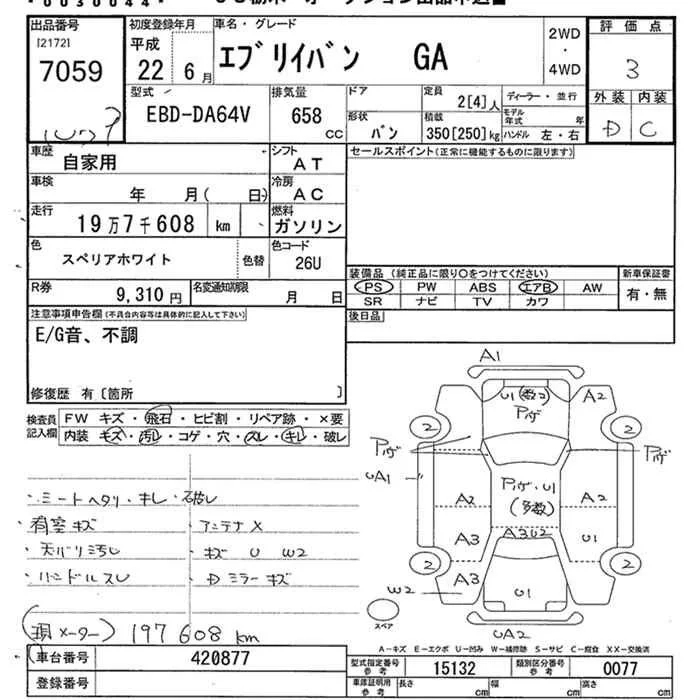 出品番号
[2172]
7059
初度登録年月
平成
22年 6月
車名・グレード
エブリイバン GA
2WD
・
4WD
評価点
3
外装 内装
D C
型式
EBD-DA64V
排気量
658
CC
ドア
形状
バン
定員
2[4]人
積載
350[250]kg
ディーラー・並行
モデル年式 年
ハンドル 左・右
車歴
自家用
シフト
AT
セールスポイント(正常に機能するものに限ります)
車検
年 月( 日)
冷房
AC
走行
19万7千608 km
燃料
ガソリン
色
スペリアホワイト
色替
色コード
26U
R券
9,310円
名変通知期限
月 日
装備品 (純正品に限り○をつけてください)
PS PW ABS エアB AW
SR ナビ TV カワ
新車保証書
有・無
後日品
注意事項申告欄(不具合内容等は具体的に記入して下さい)
E/G音、不調
修復歴 有〔箇所 〕
検査員
記入欄
FW キズ・飛石・ヒビ割・リペア跡・×要
内装 キズ・汚レ・コゲ・穴・スレ・キレ・破レ
・シートヘタリ・キレ・破レ
・荷室キズ ・アンテナX
・天バリ汚レ ・キズ U W2
・ハンドルスレ ・Dミラーキズ
(現メーター) 197608km
A1
U1(数コ)
A2
2
2
UA1
A2
U1
(多数)
A2
A3
A3U2
U1
2
2
W2
A3
U1
UA2
スペア
A-キズ E-エクボ U-凹み W-補修跡 S-サビ C-腐食 XX-交換済
車台番号
420877
登録番号
型式指定番号
参考
15132
類別区分番号
参考
0077
車庫証明用
参考
長さ cm
幅 cm
高さ cm